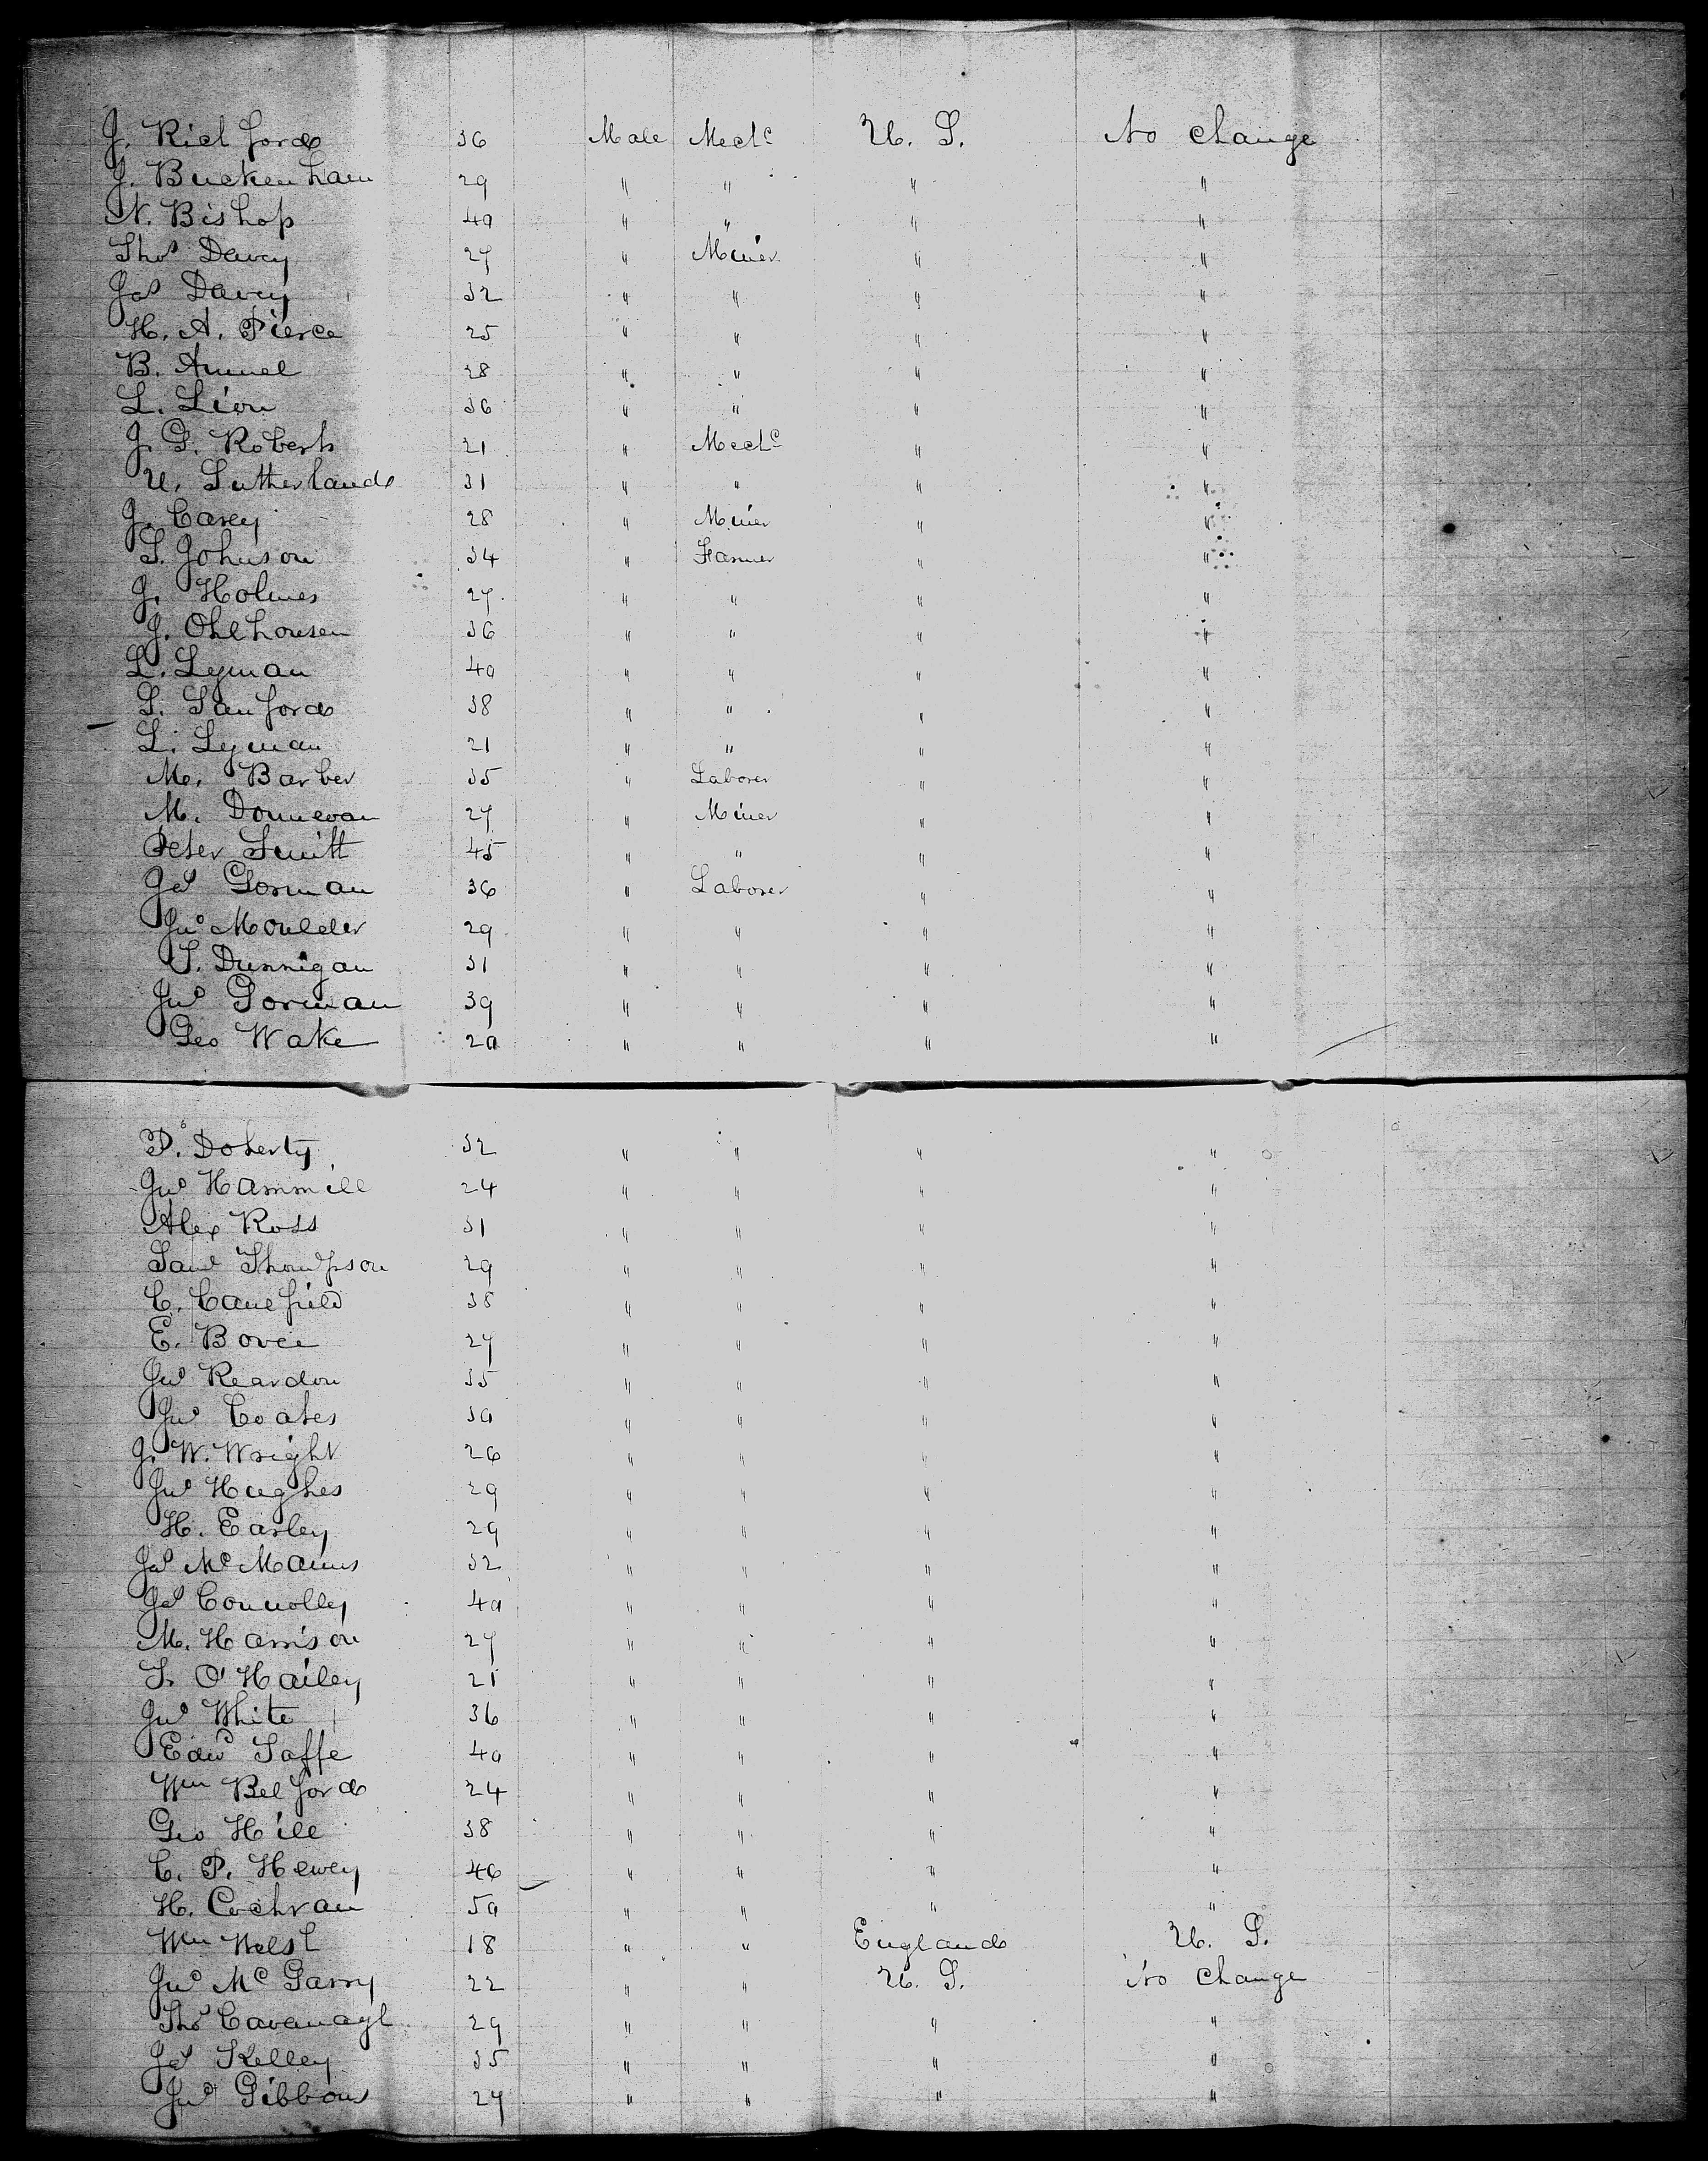 J. Rickford 36 Male Mechc U. S. No change
J. Buckenham 29 " " " "
N. Bishop 40 " " " "
Thos Davey 27 " Miner " "
Jas Davey 32 " " " "
H. A. Pierce 25 " " " "
B. Ammel 28 " " " "
L. Lion 36 " " " "
J. G. Roberts 21 " Mechc " "
U. Sutherland 31 " " " "
J. Carey 28 " Miner " "
S. Johnson 34 " Farmer " "
J. Holmes 27 " " " "
J. Ohlhousen 36 " " " "
L. Lyman 40 " " " "
S. Sanford 38 " " " "
L. Lyman 21 " " " "
M. Barber 35 " Laborer " "
M. Donnevan 27 " Miner " "
Peter Smith 45 " " " "
Jas Gorman 36 " Laborer " "
Jno Moulder 29 " " " "
T. Dunnigan 31 " " " "
Jno Gorman 39 " " " "
Geo Wake 20 " " " "
P. Doherty 32 " " " "
Jno Hammill 24 " " " "
Alex Ross 31 " " " "
Saml Thompson 29 " " " "
C. Canefield 38 " " " "
E. Bovee 27 " " " "
Jno Reardon 35 " " " "
Jno Coates 30 " " " "
J. W. Wright 26 " " " "
Jno Hughes 29 " " " "
H. Earley 29 " " " "
Jas McManus 32 " " " "
Jas Connolley 40 " " " "
M. Harrison 27 " " " "
T. O'Hailey 21 " " " "
Jno White 36 " " " "
Edwd Taffe 40 " " " "
Wm Belford 24 " " " "
Geo Hill 38 " " " "
C. P. Hewey 46 " " " "
H. Cochran 50 " " " "
Wm Welsh 18 " " England U. S.
Jno McGarry 22 " " U. S. No change
Thos Cavanagh 29 " " " "
Jas Kelley 35 " " " "
Jno Gibbons 27 " " " "